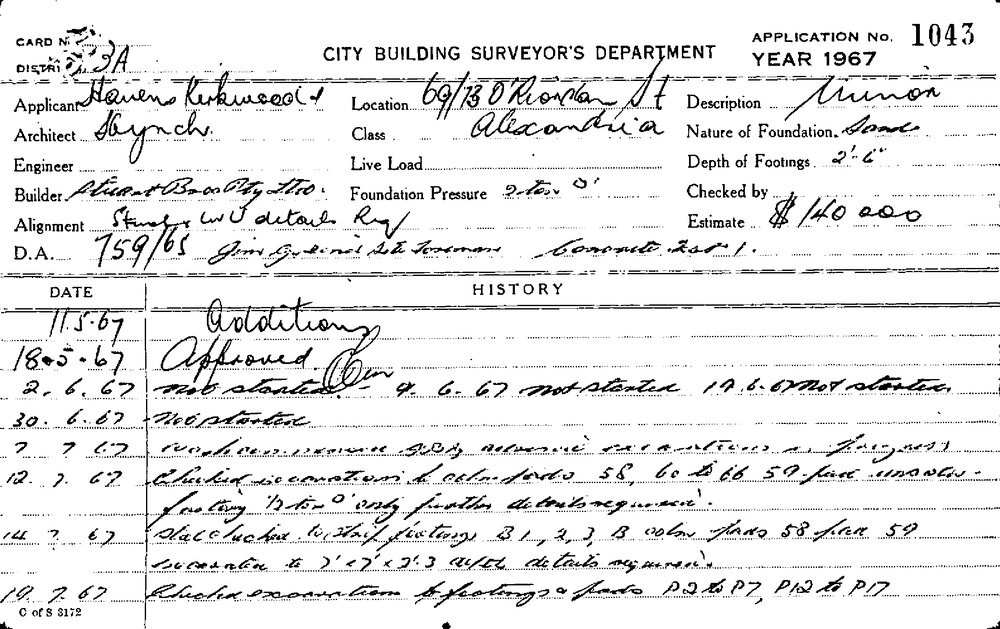 CARD No.
DISTRI 3A
CITY BUILDING SURVEYOR'S DEPARTMENT
APPLICATION No. 1043
YEAR 1967
Applicant Havens Kirkwood &
Location 69/73 O'Riordan St
Description Minor
Architect Lynch.
Class Alexandria
Nature of Foundation. Sand
Engineer
Live Load
Depth of Footings 2'-6"
Builder Stuart Bros Pty Ltd.
Foundation Pressure 2 ton
Checked by
Alignment details Req
Estimate $140 000
D.A. 759/65 Jim Foreman Concrete
DATE HISTORY
11.5.67 Additions
18.5.67 Approved.
2.6.67 Not started. 9.6.67 not started 19.6.67 not started.
30.6.67 Not started
7 7 67 excavations in progress
12.7.67 Checked excavations to colm pads 58, 60 to 66 59 pad
footing only further details required.
14 7 67 strip footings B 1, 2, 3, B colm pads 58 pad 59
excavated to 7' x 7' x 2'.3 details required.
19.7.67 Checked excavation to footings & pads P2 to P7, P12 to P17
C of S 3172